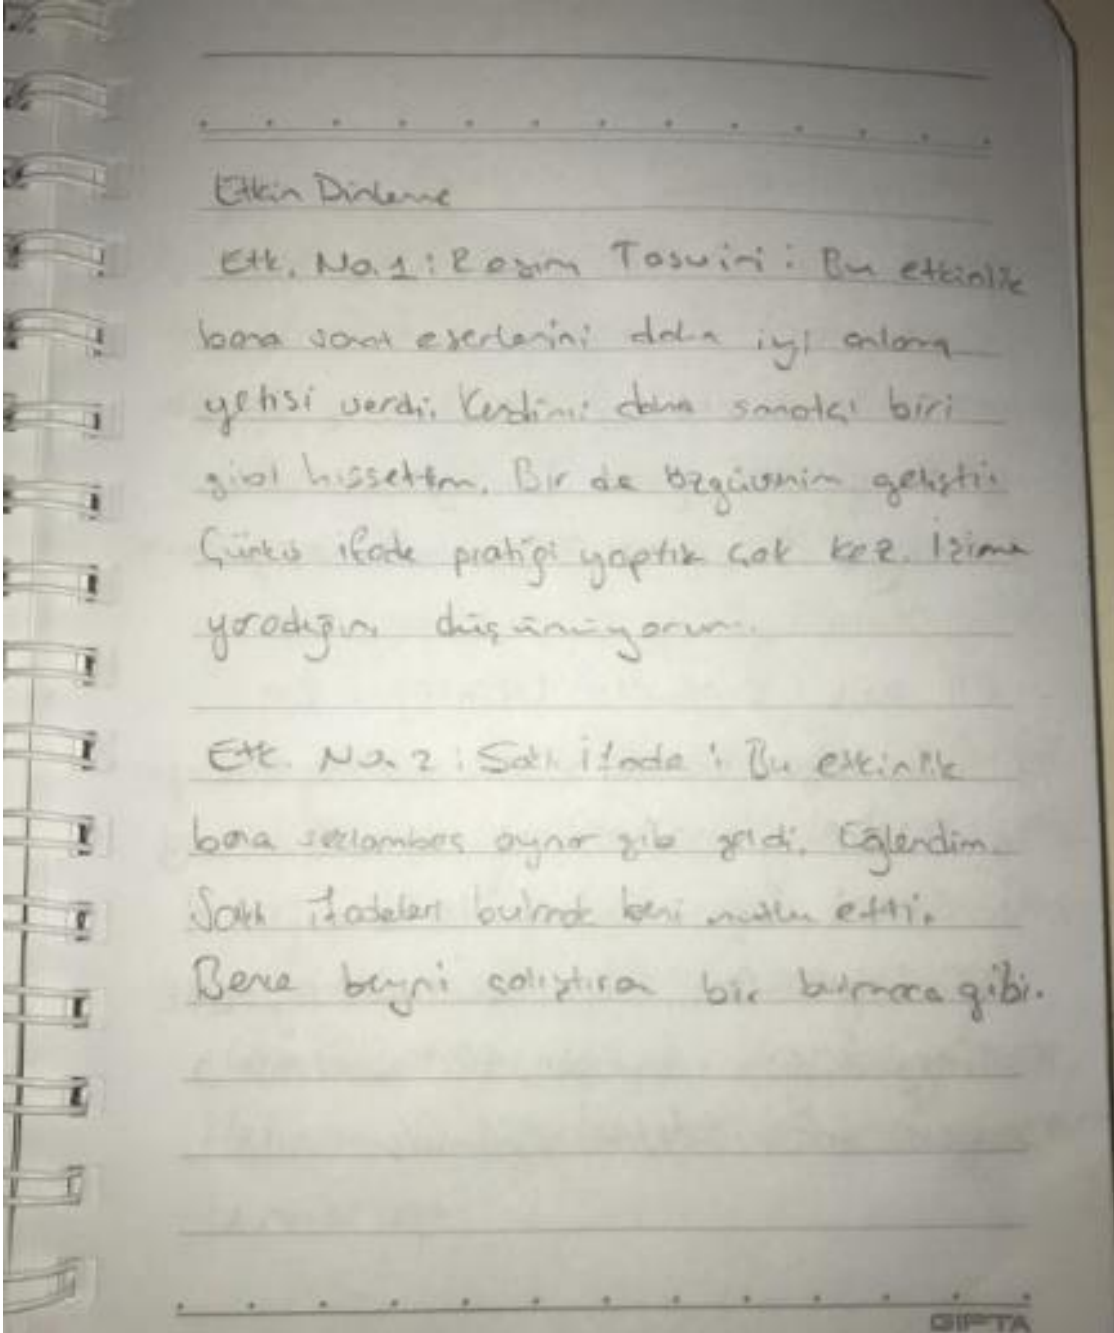 Etkin Dinleme
Etk. No.1 : Resim Tasviri : Bu etkinlik
bana sanat eserlerini daha iyi anlama
yetisi verdi. Kendimi daha sanatçı biri
gibi hissettim. Bir de özgüvenim gelişti.
Çünkü ifade pratiği yaptık çok kez. İzime
yaradığını düşünüyorum.
Etk. No. 2 : Saklı İfade : Bu etkinlik
bana saklambaç oynar gibi geldi. Eğlendim.
Saklı ifadeleri bulmak beni mutlu etti.
Bence beyni çalıştıran bir bulmaca gibi.
GIPTA